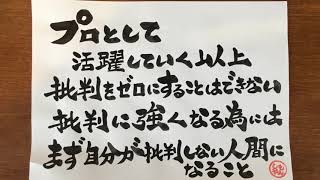 プロとして
活躍していく以上
批判をゼロにすることはできない
批判に強くなる為には
まず自分が批判しない人間に
なること